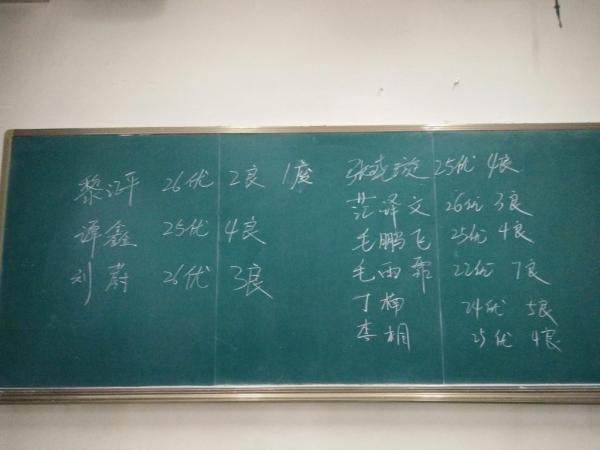 黎江平 26优 2良 1废
谭鑫 25优 4良
刘蔚 26优 3良
张 25优 4良
范泽文 26优 3良
毛鹏飞 25优 4良
毛雨霏 22优 7良
丁楠 24优 5良
李桐 25优 4良